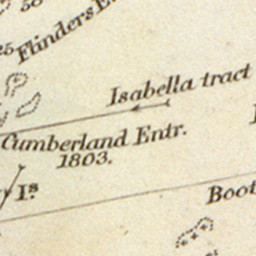 Flinders
Isabella tract
Cumberland Entr.
1803.
Is
Boot